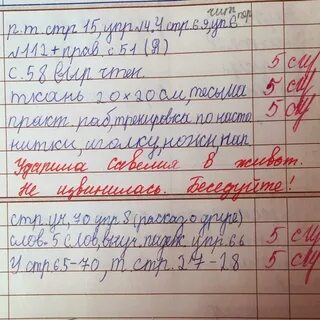 чит. пер
р.т. стр 15, упр 14. У стр 69, уп 6
N112 + прав. с 51 (Я)
с. 58 выр чтен. 5 СЩ
ткань 20×20 см, тесьма 5 СЩ
практ. раб, тренировка по наста 5 СЩ
нитки, иголку, ножн нап
Ударила Савелия в живот.
Не извинилась. Беседуйте!
стр. уч, 70 упр 8 (рассказ о друге)
слов. 5 слов, выуч. падеж. упр. 66 5 СЩ
У стр 65-70, т. стр. 27-28 5 СЩ